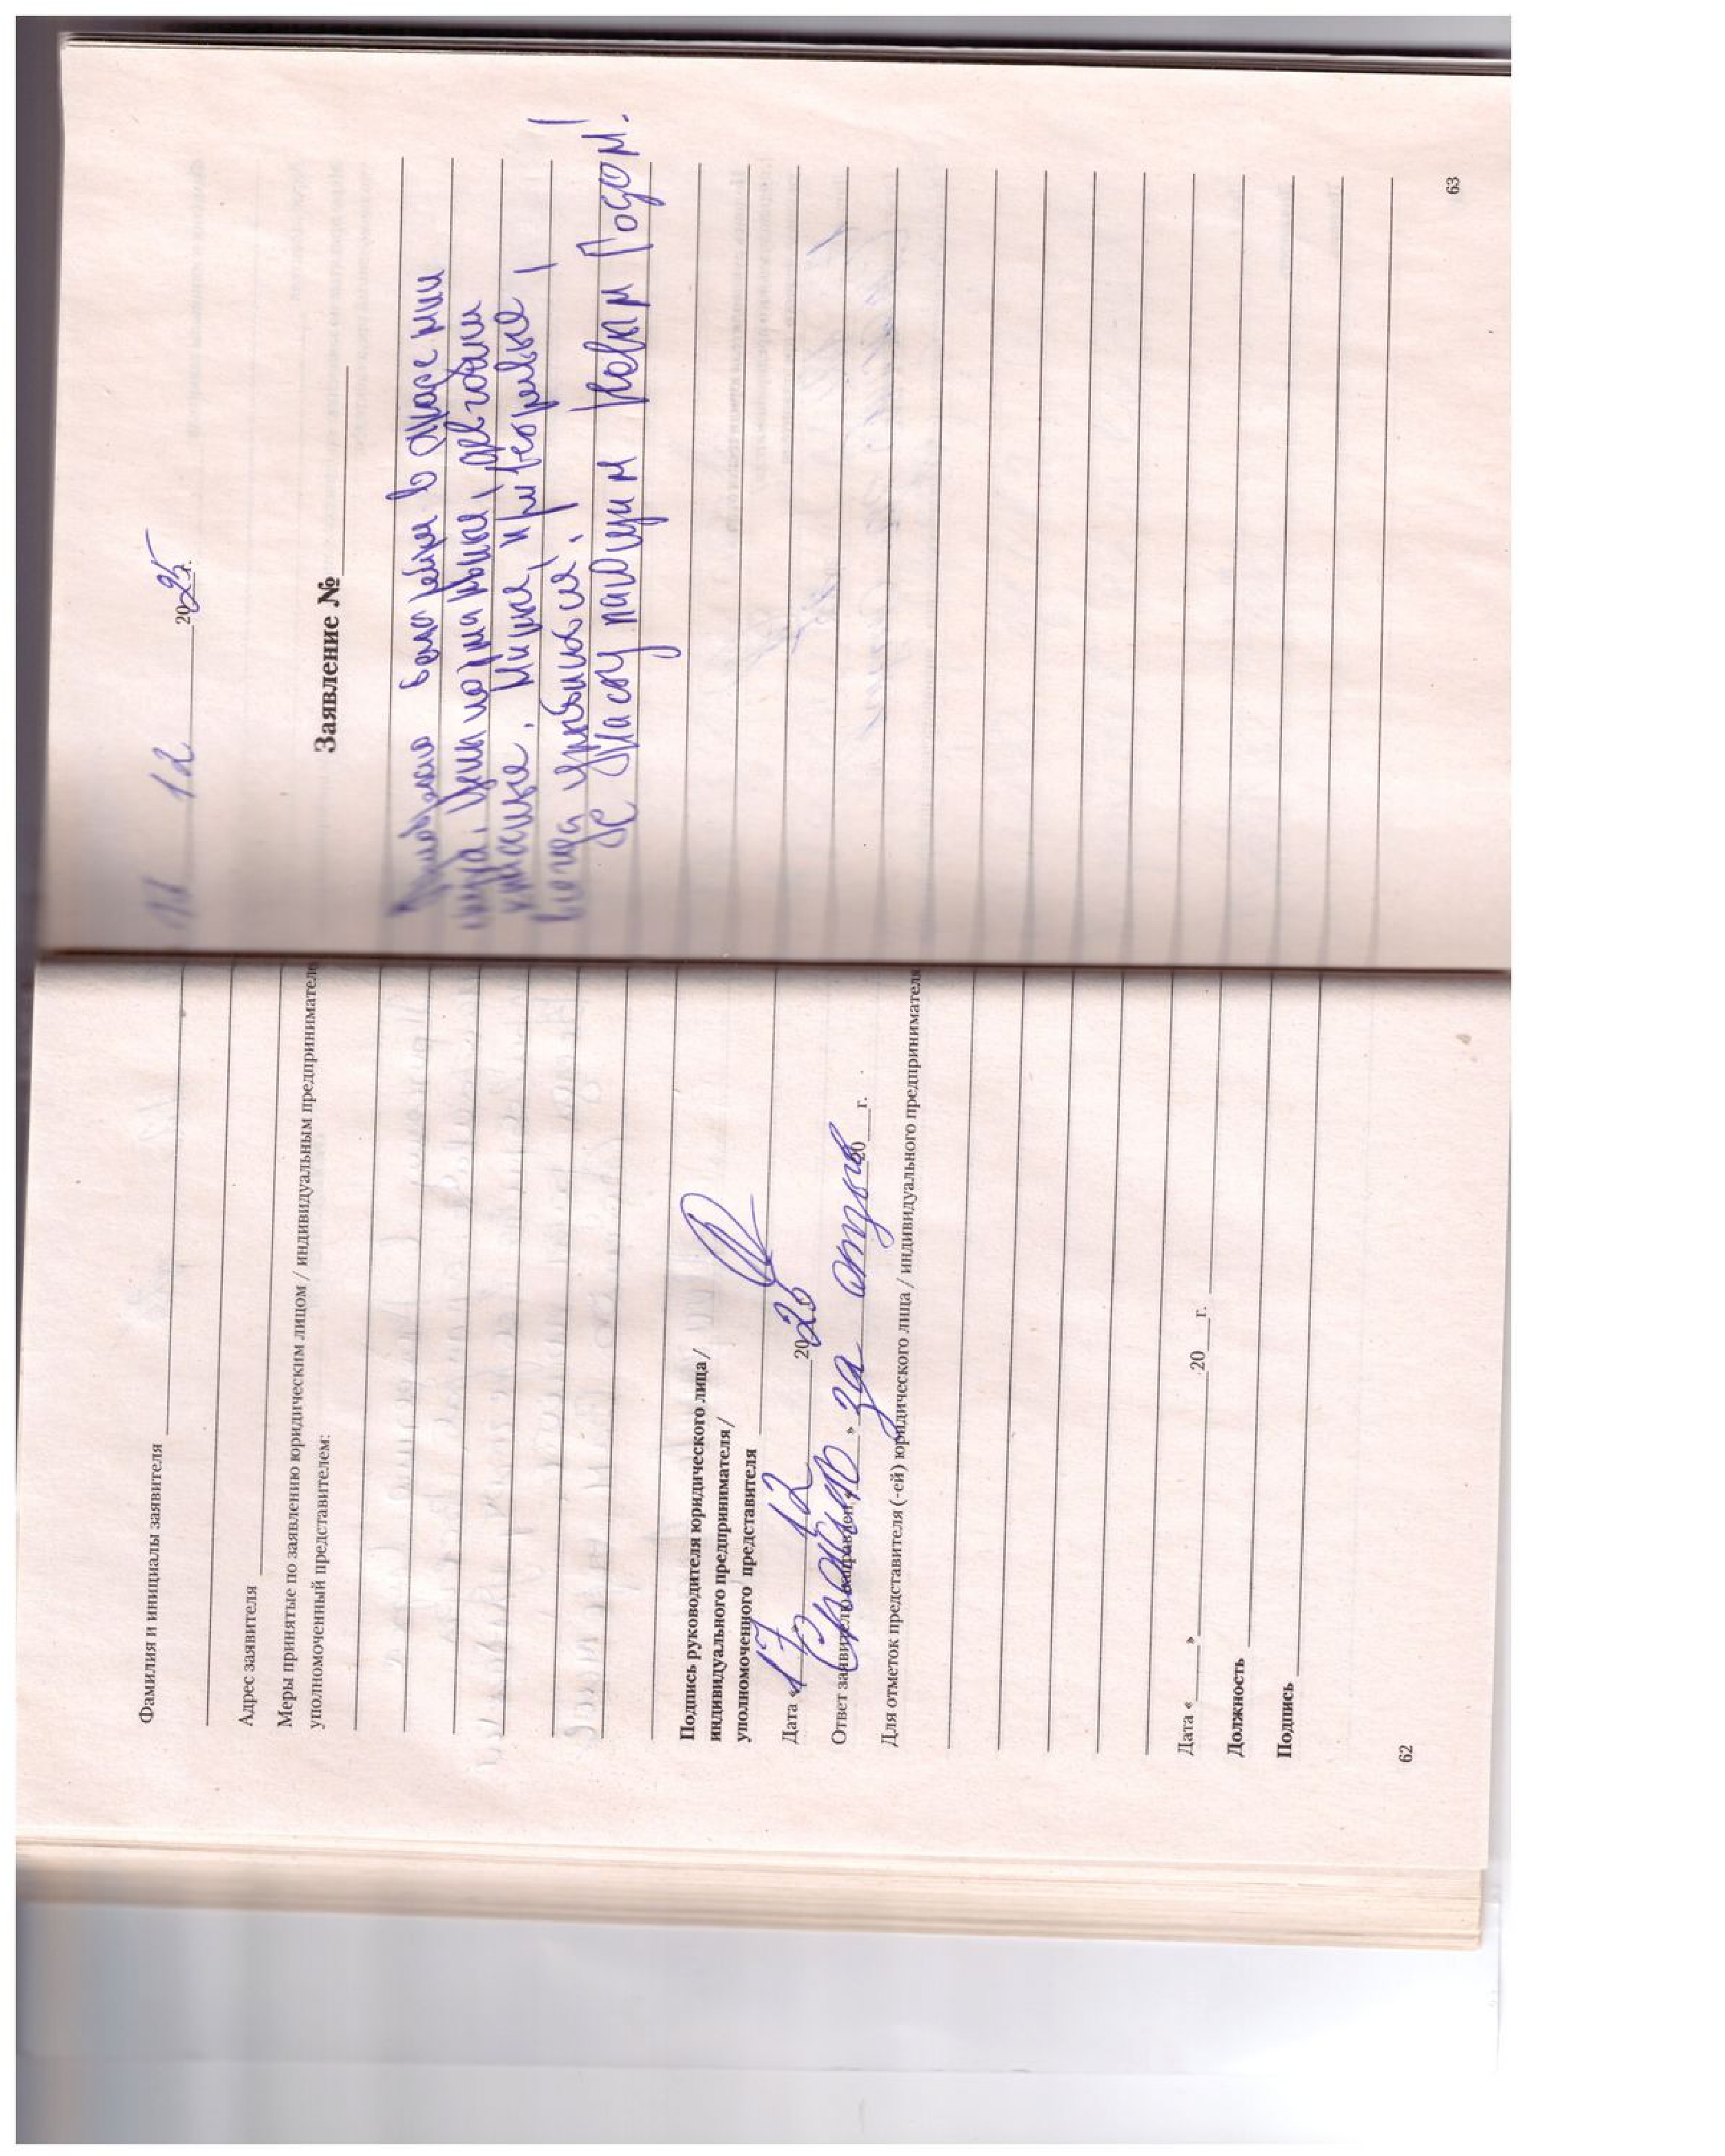 Фамилия и инициалы заявителя
Адрес заявителя
Меры принятые по заявлению юридическим лицом / индивидуальным предпринимателе
уполномоченный представителем:
Подпись руководителя юридического лица /
индивидуального предпринимателя /
уполномоченного представителя
Дата « 17 » 12 2025
Ответ заявителю направлен « » 20 г.
Спасибо за отзыв
Для отметок представителя (-ей) юридического лица / индивидуального предпринимателя
Дата « » 20 г.
Должность
Подпись
62
12 2025 г.
Заявление №
в академии
Цены нормальные, девочки
милые, приветливые,
всегда
С Наступающим Новым Годом!
63